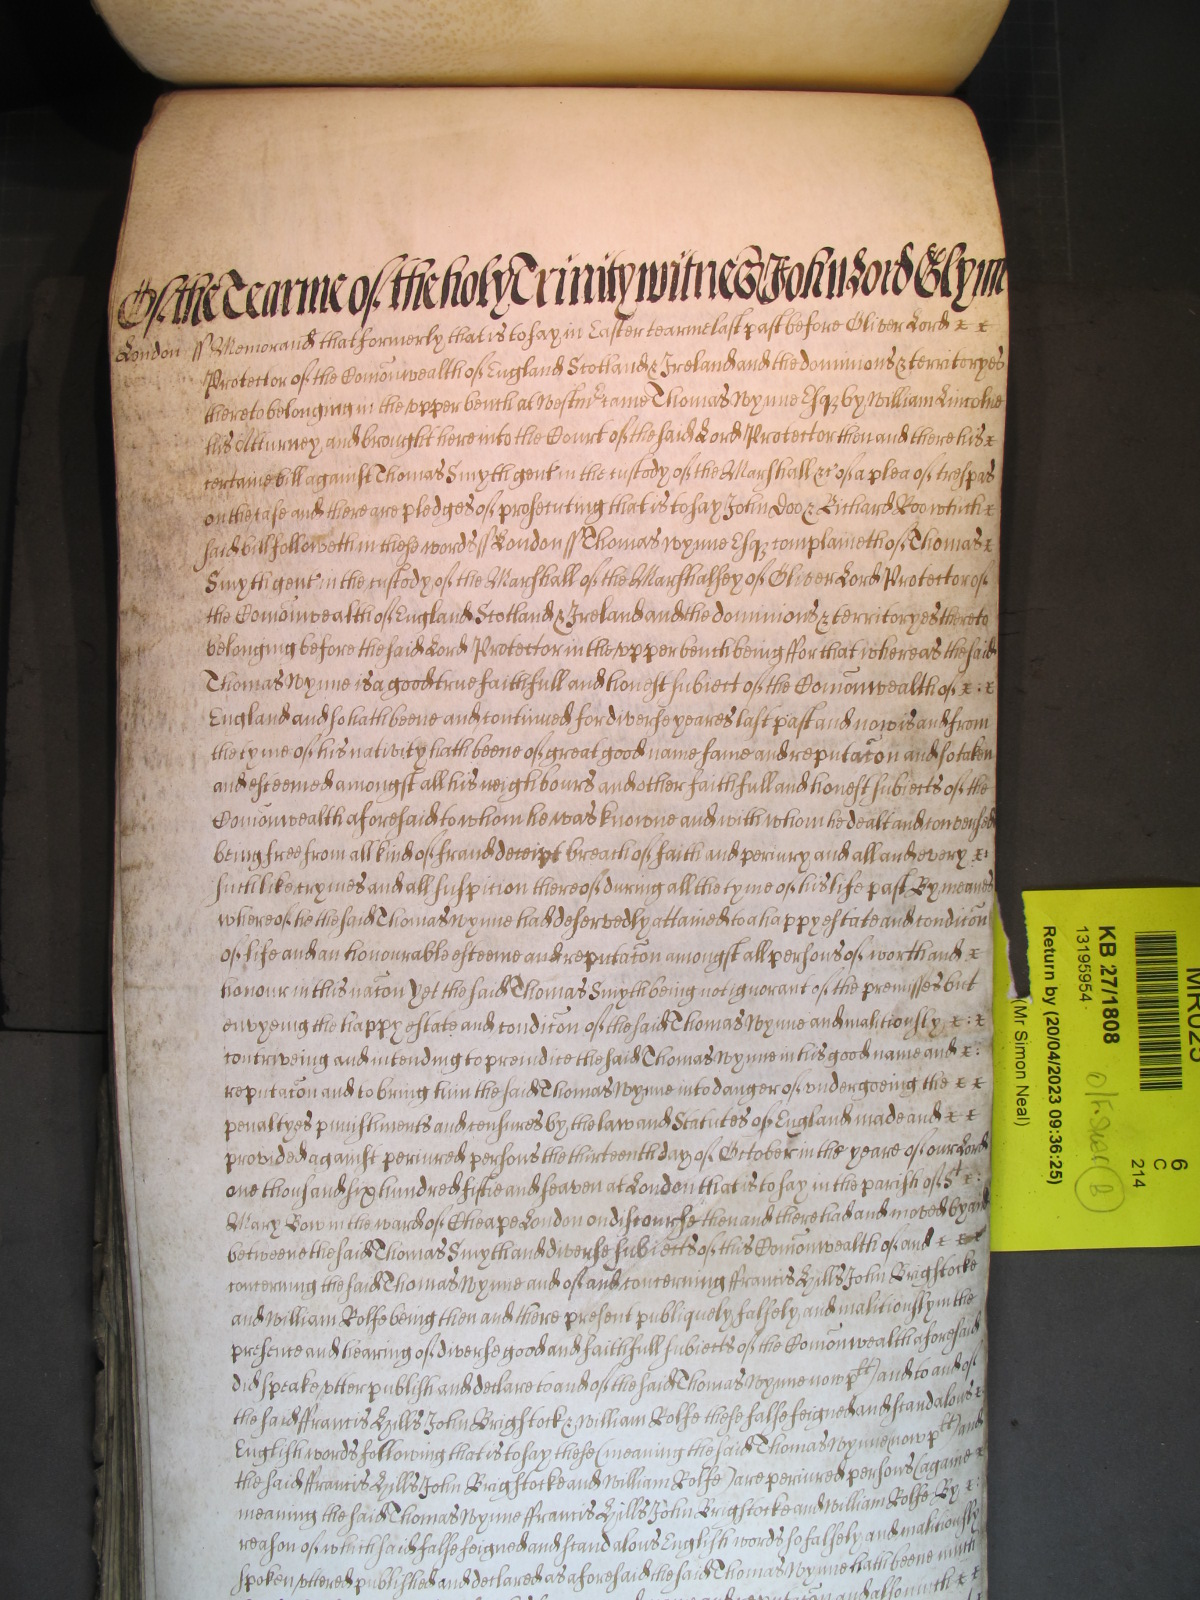 Of the Tearme of the holy Trinity witnes John Lord Glynn
London ss Memorand that formerly that is to say in Easter tearme last past before Oliver Lord
Protector of the Comonwealth of England Scotland & Ireland and the dominions & territoryes
thereto belonging in the upper bench at Westmr came Thomas Wynne Esqr by William Lincolne
his Atturney and brought here into the Court of the said Lord Protector then and there his
certaine bill against Thomas Smyth gent in the custody of the Marshall &c of a plea of trespas
on the case and there are pledges of prosecuting that is to say John Doo & Richard Roo which
said bill followeth in these words ss London ss Thomas Wynne Esqr complaineth of Thomas
Smyth gent in the custody of the Marshall of the Marshalsey of Oliver Lord Protector of
the Comonwealth of England Scotland & Ireland and the dominions & territoryes thereto
belonging before the said Lord Protector in the upper bench being ffor that whereas the said
Thomas Wynne is a good true faithfull and honest subiect of the Comonwealth of
England and so hath beene and continued for diverse yeares last past and now is and from
the tyme of his nativity hath beene of great good name fame and reputacon and so taken
and esteemed amongst all his neighbours and other faithfull and honest subiects of the
Comonwealth aforesaid to whom he was knowne and with whom he dealt and conversed
being free from all kind of fraud deceipt breach of faith and periury and all and every
such like crymes and all suspition thereof during all the tyme of his life past By meanes
whereof he the said Thomas Wynne had deservedly attained to a happy estate and condicon
of life and an honourable esteeme and reputacon amongst all persons of worth and
honour in this nacon Yet the said Thomas Smyth being not ignorant of the premisses but
envyeing the happy estate and condicon of the said Thomas Wynne and malitiously
contriveing and intending to preiudice the said Thomas Wynne in his good name and
reputacon and to bring him the said Thomas Wynne into danger of undergoeing the
penaltyes punishments and censures by the law and Statutes of England made and
provided against periured persons the thirteenth day of October in the yeare of our Lord
one thousand six hundred fiftie and seaven at London that is to say in the parish of St
Mary Bow in the ward of Cheape London on discourse then and there had and moved by and
betweene the said Thomas Smyth and diverse subiects of this Comonwealth of and
concerning the said Thomas Wynne and of and concerning ffrancis Gills John Brigstocke
and William Rolfe being then and there present publiquely falsely and malitiously in the
presence and hearing of diverse good and faithfull subiects of the Comonwealth aforesaid
did speake utter publish and declare to and of the said Thomas Wynne now plt) and to and of
the said ffrancis Gills John Brigstock & William Rolfe these false feigned and scandalous
English words following that is to say these (meaning the said Thomas Wynne now plt) and
the said ffrancis Gills John Brigstocke and William Rolfe) are periured persons (againe
meaning the said Thomas Wynne ffrancis Gills John Brigstocke and William Rolfe By
reason of which said false feigned and scandalous English words so falsely and malitiously
spoken uttered published and declared as aforesaid the said Thomas Wynne hath beene much
name and reputacon and also
MR025
6
C
214
KB 27/1808
13195954
Return by (20/04/2023 09:36:25)
(Mr Simon Neal)